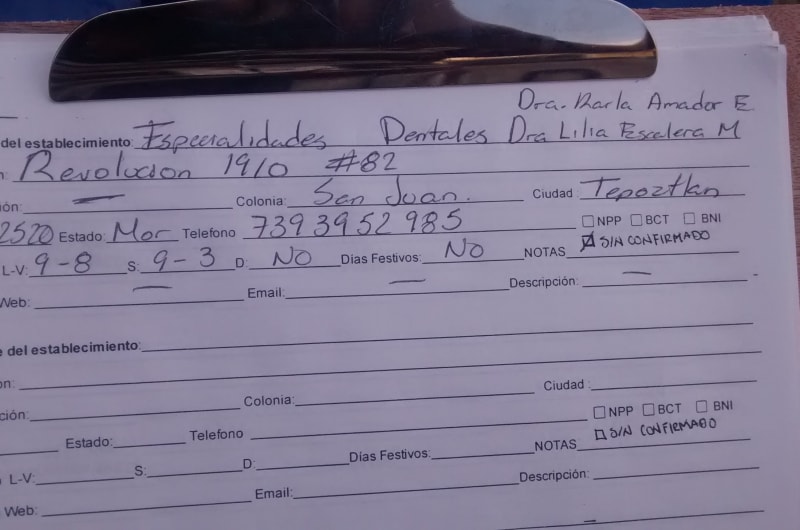 Dra. Karla Amador E
del establecimiento: Especialidades Dentales Dra Lilia Escalera M
n: Revolucion 1910 #82
ión: — Colonia: San Juan. Ciudad: Tepoztlan
2520 Estado: Mor Telefono 7393952985 ☐ NPP ☐ BCT ☐ BNI
L-V: 9-8 S: 9-3 D: NO Días Festivos: No NOTAS ☒ SIN CONFIRMADO
Web: — Email: — Descripción: —
e del establecimiento:
ón:
ción: Colonia: Ciudad:
Estado: Telefono ☐ NPP ☐ BCT ☐ BNI
L-V: S: D: Días Festivos: NOTAS ☐ SIN CONFIRMADO
Web: Email: Descripción: